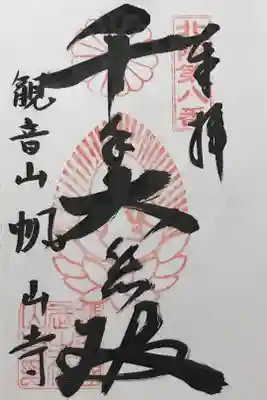 奉拝
北陸第八番
千手大悲殿
観音山帆山寺